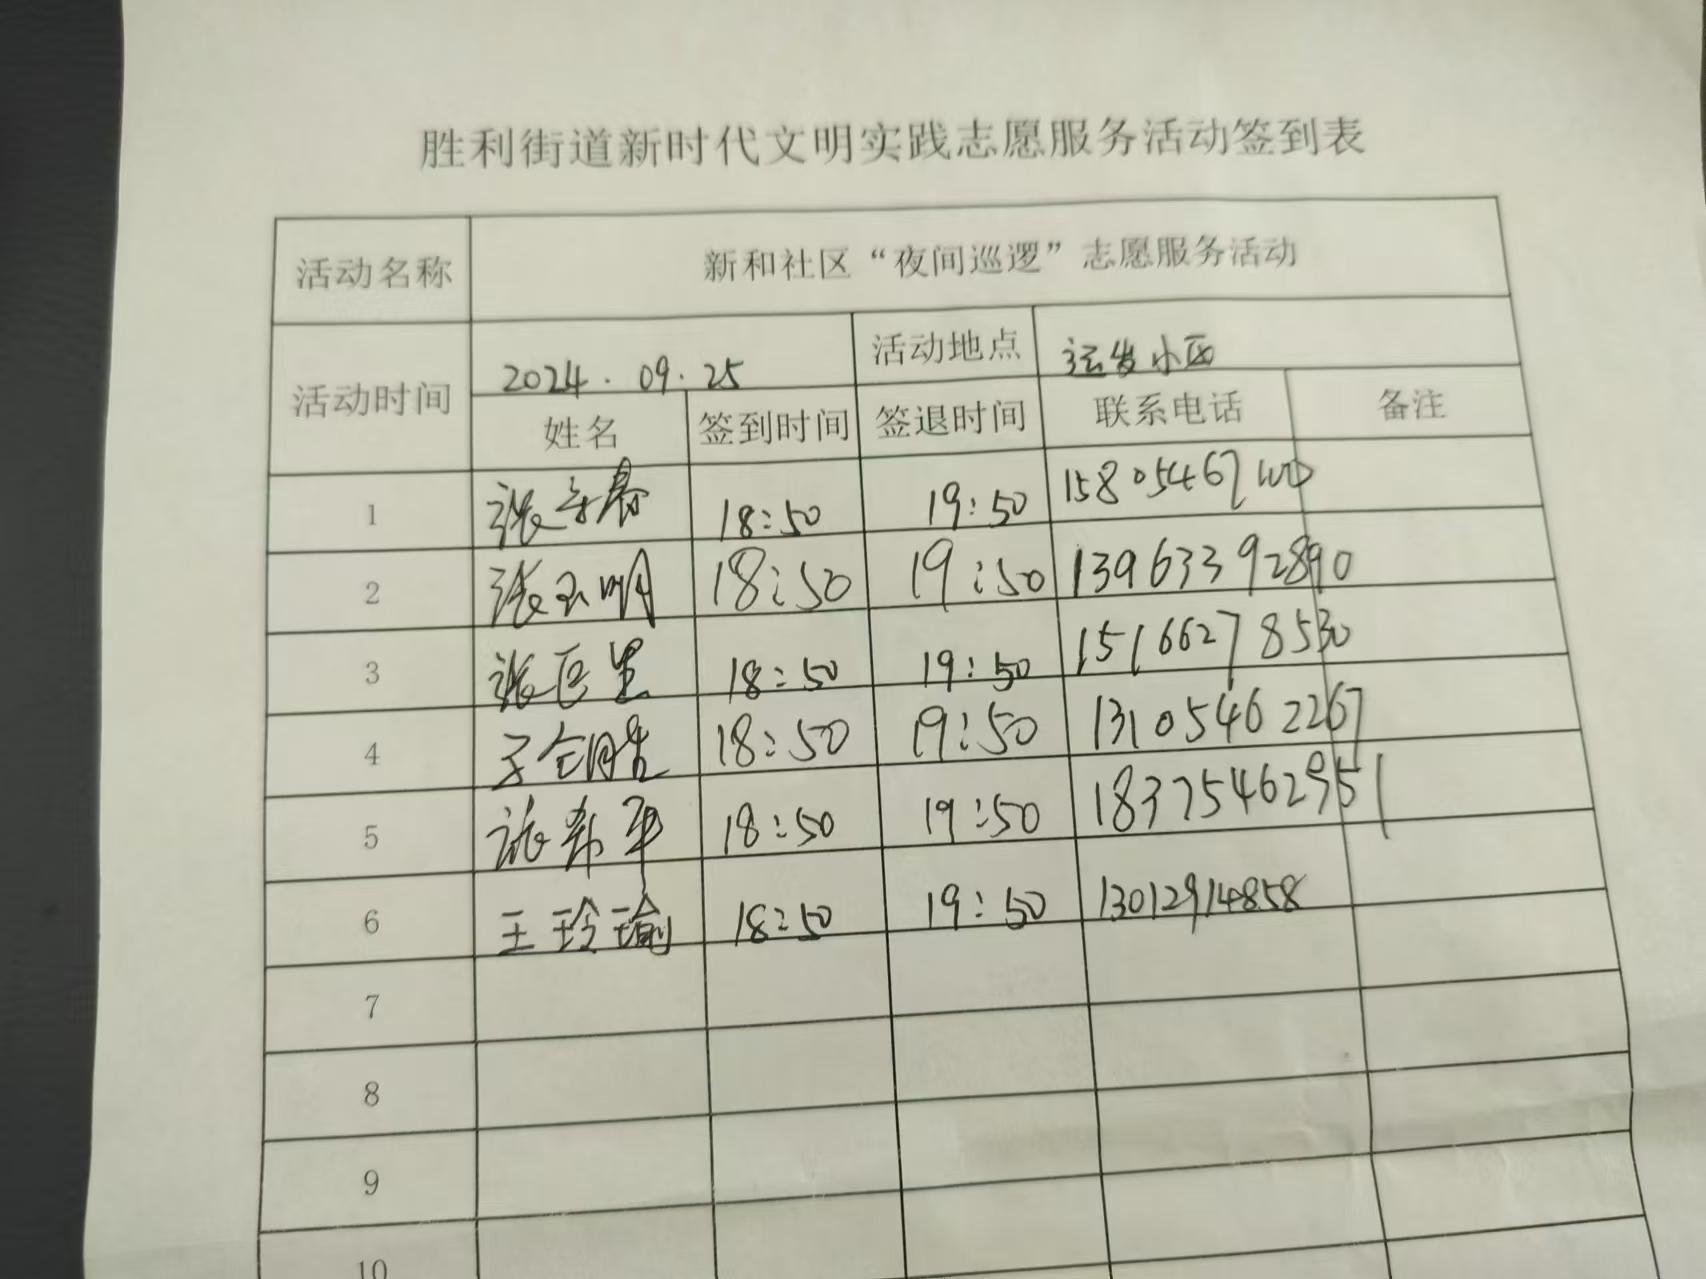 胜利街道新时代文明实践志愿服务活动签到表
活动名称 新和社区“夜间巡逻”志愿服务活动
活动时间 2024.09.25 活动地点 运发小区
姓名 签到时间 签退时间 联系电话 备注
1 18:50 19:50 15805467
2 张玉明 18:50 19:50 13963392890
3 18:50 19:50 15166278530
4 18:50 19:50 13105462267
5 张希平 18:50 19:50 18375462951
6 王玲瑜 18:50 19:50 13012914858
7
8
9
10